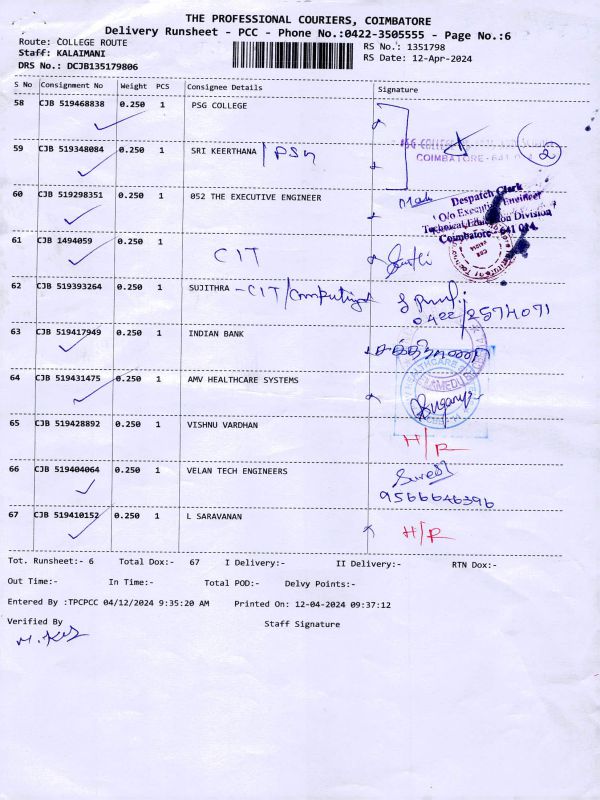 THE PROFESSIONAL COURIERS, COIMBATORE
Delivery Runsheet - PCC - Phone No.:0422-3505555 - Page No.:6
Route: COLLEGE ROUTE
RS No.: 1351798
Staff: KALAIMANI
RS Date: 12-Apr-2024
DRS No.: DCJB135179806
S No Consignment No Weight PCS Consignee Details Signature
58 CJB 519468838 0.250 1 PSG COLLEGE
2
59 CJB 519348084 0.250 1 SRI KEERTHANA / PSG
COIMBATORE - 641 0
60 CJB 519298351 0.250 1 052 THE EXECUTIVE ENGINEER
Despatch Clerk
O/o Executive Engineer
Technical Education Division
Coimbatore - 641 014.
61 CJB 1494059 0.250 1 CIT
62 CJB 519393264 0.250 1 SUJITHRA - CIT/Computing
0422/2574071
63 CJB 519417949 0.250 1 INDIAN BANK
64 CJB 519431475 0.250 1 AMV HEALTHCARE SYSTEMS
65 CJB 519428892 0.250 1 VISHNU VARDHAN H/R
66 CJB 519404064 0.250 1 VELAN TECH ENGINEERS Suresh
9566646396
67 CJB 519410152 0.250 1 L SARAVANAN H/R
Tot. Runsheet:- 6 Total Dox:- 67 I Delivery:- II Delivery:- RTN Dox:-
Out Time:- In Time:- Total POD:- Delvy Points:-
Entered By :TPCPCC 04/12/2024 9:35:20 AM Printed On: 12-04-2024 09:37:12
Verified By Staff Signature